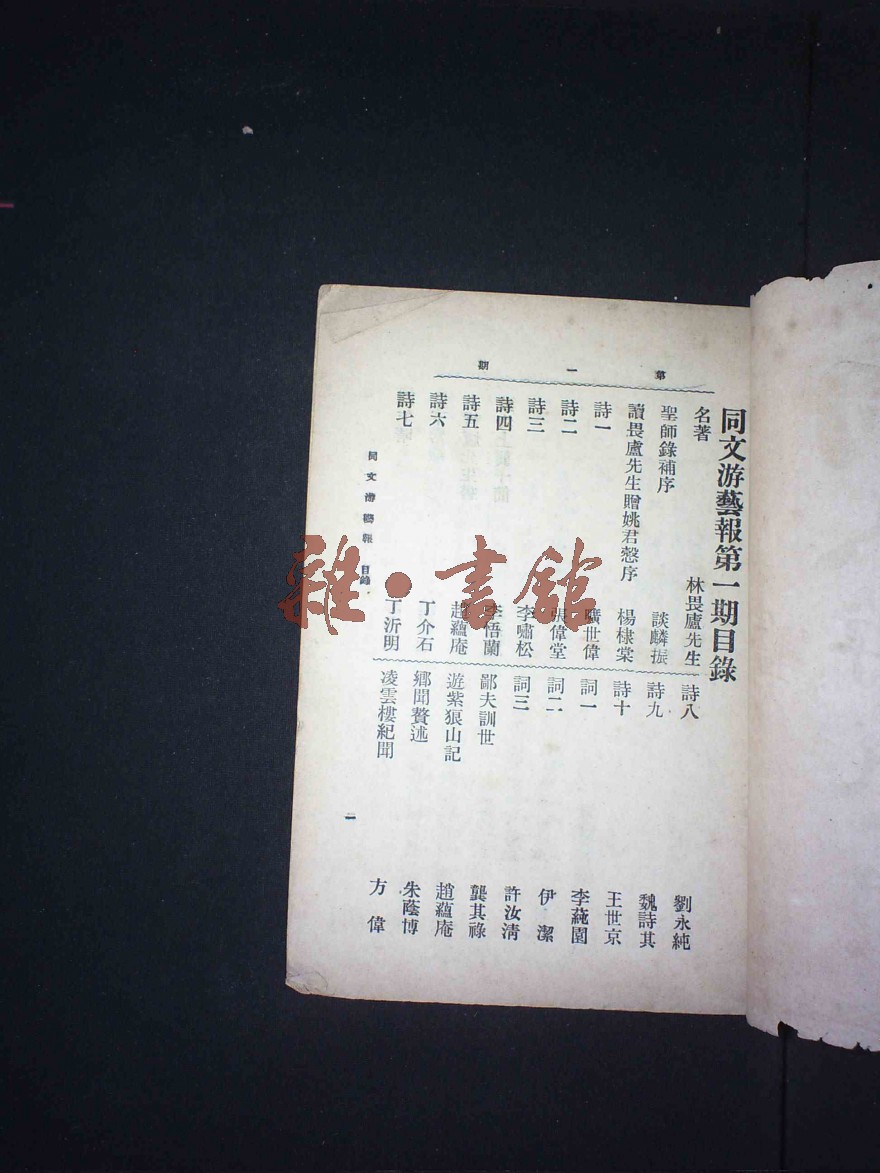 第一期
同文游藝報第一期目錄
名著 林畏盧先生
聖師錄補序 談麟振
讀畏盧先生贈姚君慤序 楊棣棠
詩一 曠世偉
詩二 張偉堂
詩三 李嘯松
詩四 李悟蘭
詩五 趙蘊庵
詩六 丁介石
詩七 丁沂明
詩八 劉永純
詩九 魏詩其
詩十 王世京
詞一 李蒓園
詞二 伊潔
詞三 許汝清
鄙夫訓世 龔其祿
遊紫狼山記 趙蘊庵
鄉聞贅述 朱蔭博
凌雲樓紀聞 方偉
同文游藝報 目錄
二
雜·書館